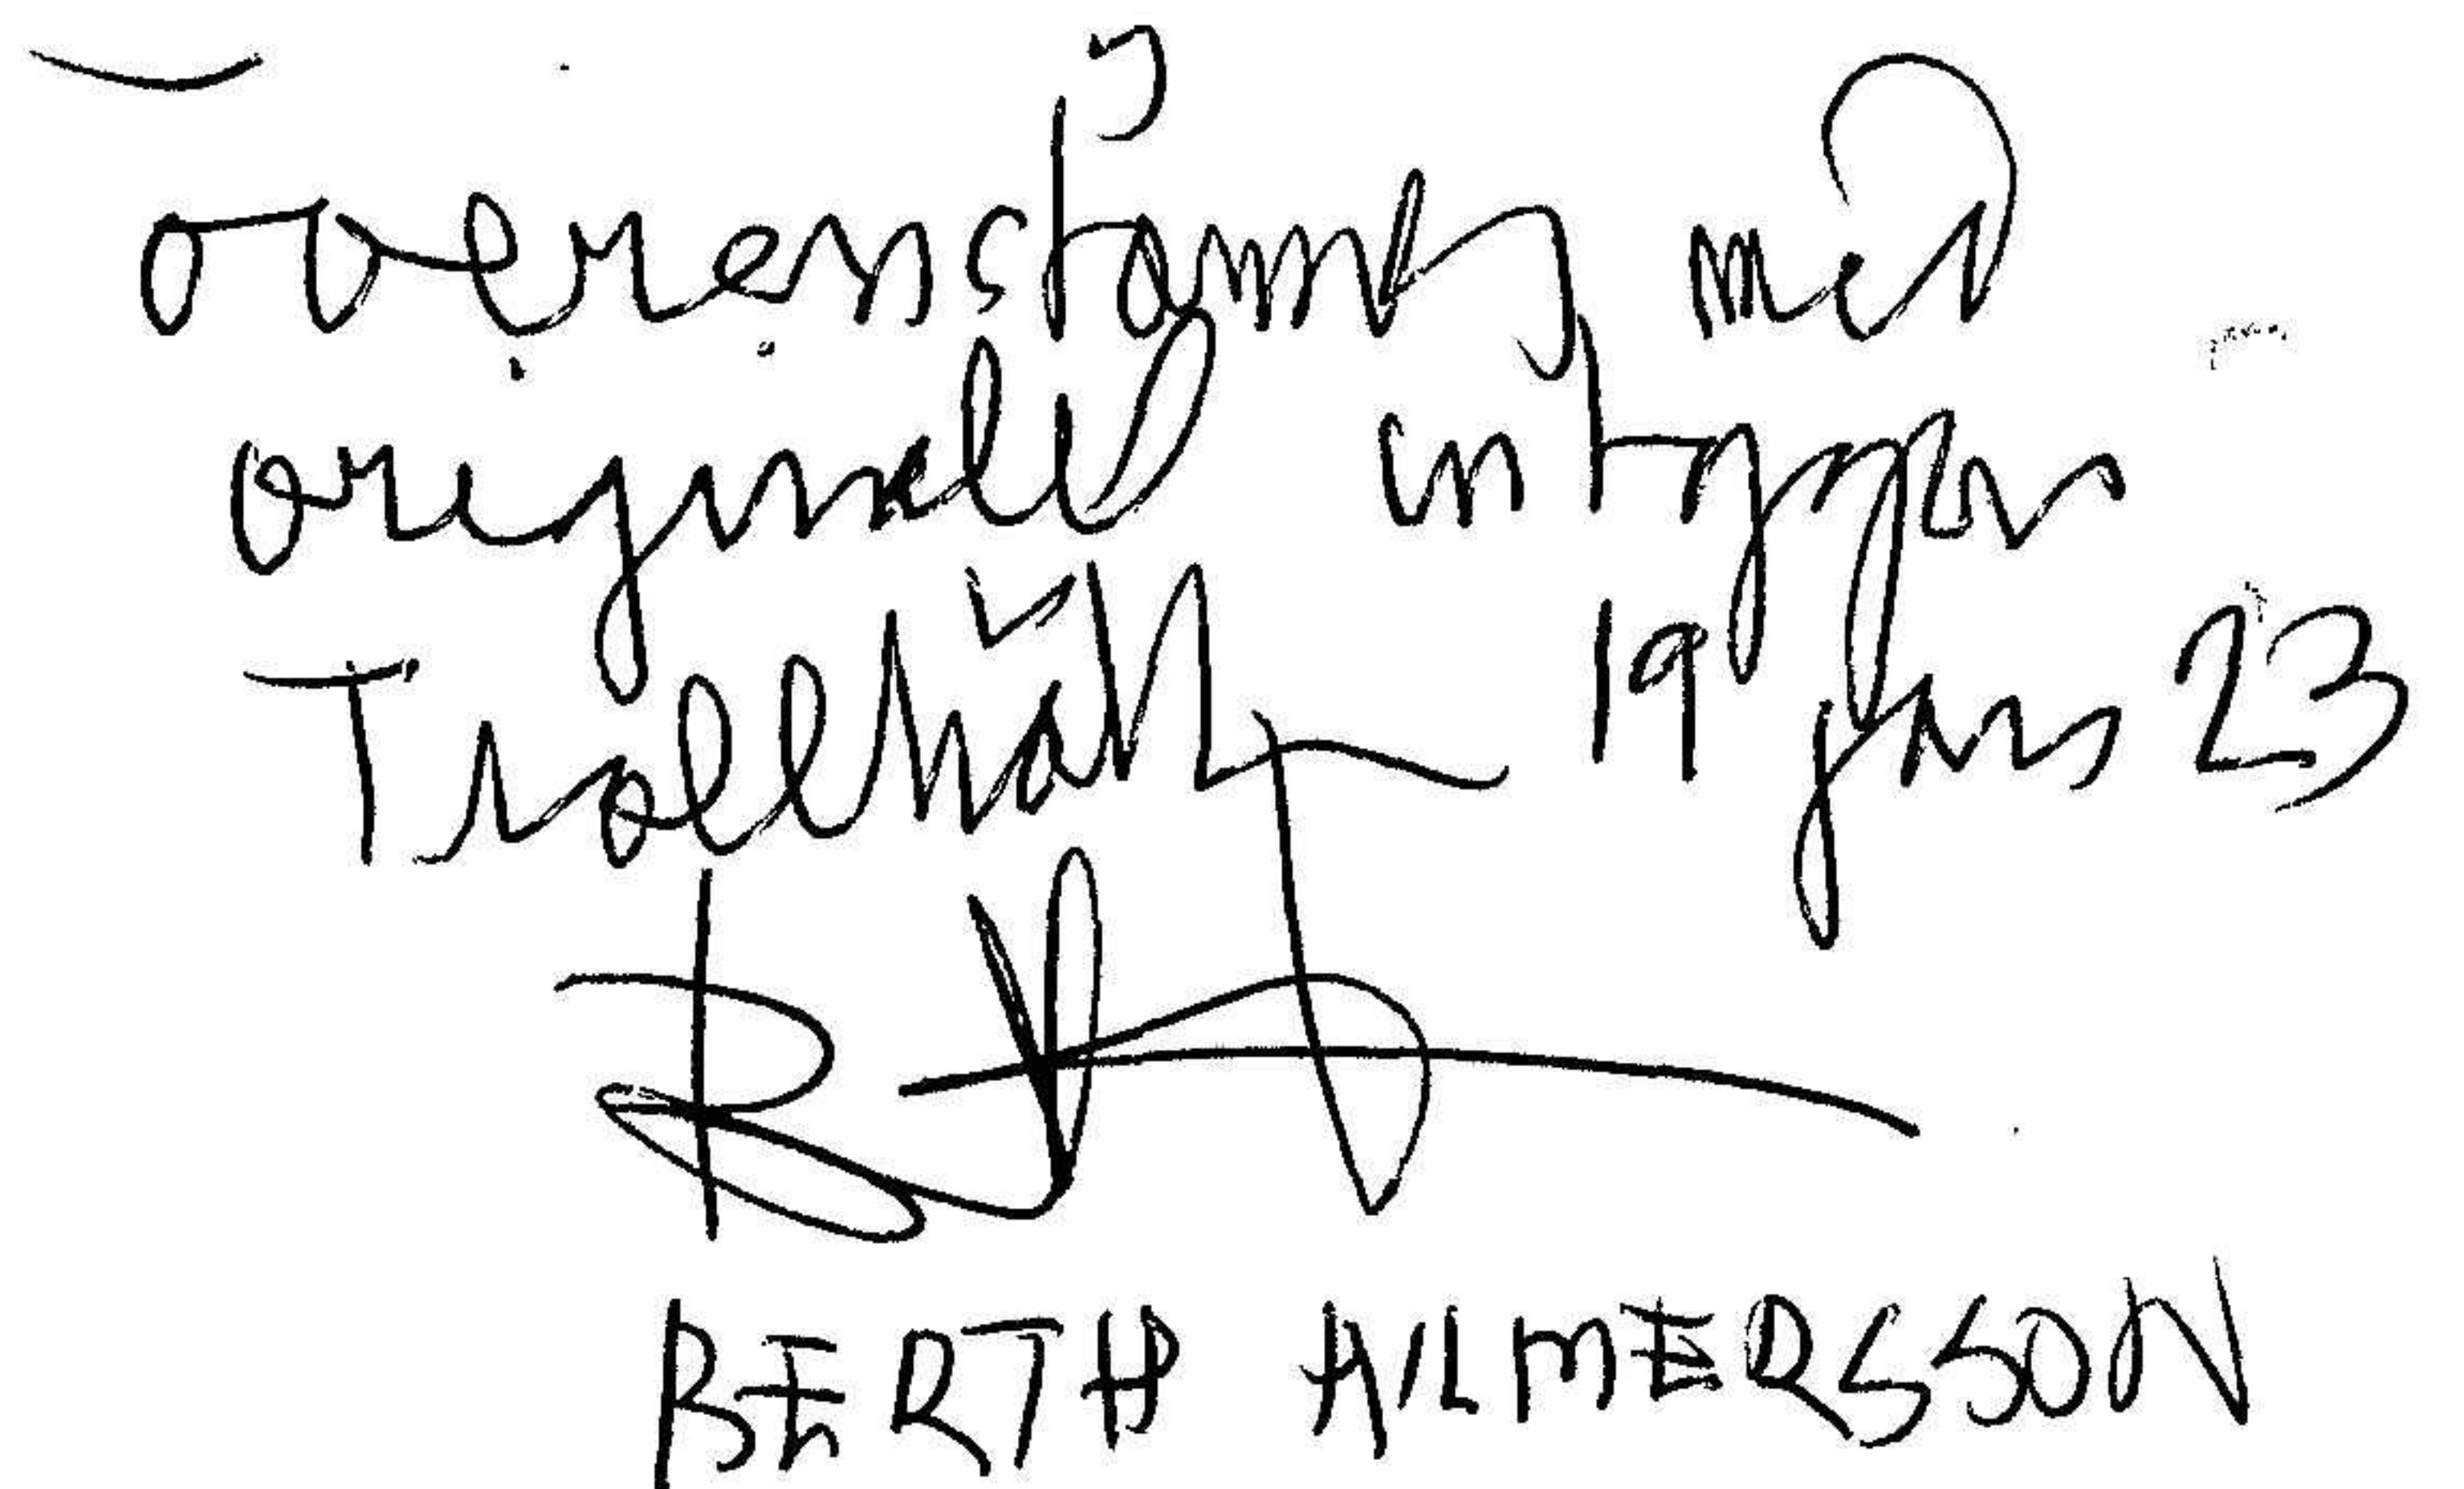 överensstämmer med
originalet intygar
Trollhättan 19 jan 23
BERTH HILMERSSON